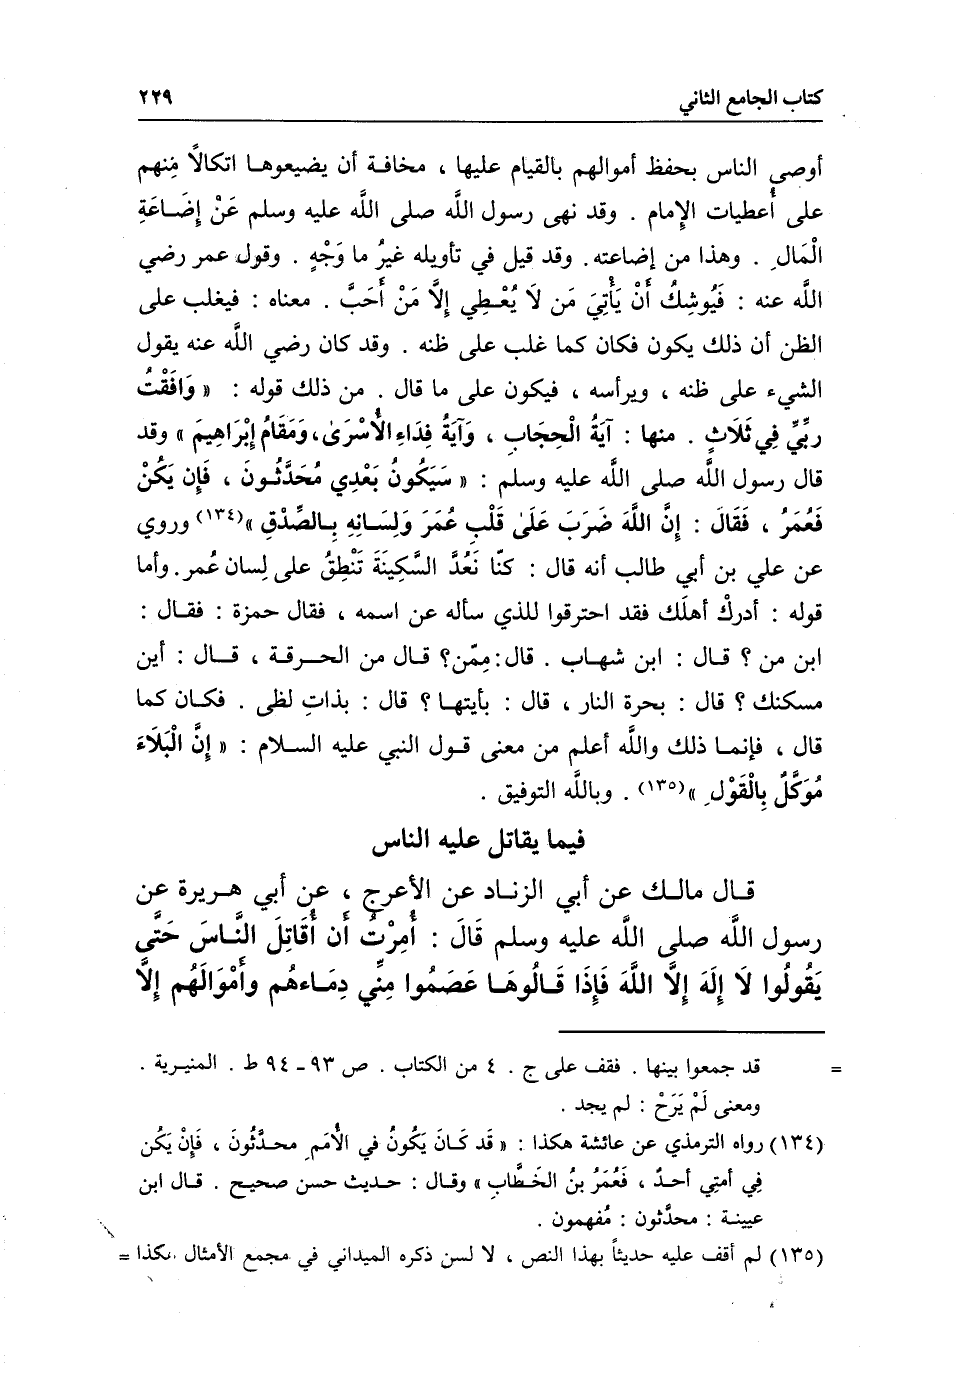 كتاب الجامع الثاني ٢٢٩
أوصى الناس بحفظ أموالهم بالقيام عليها ، مخافة أن يضيعوها اتكالًا مِنهم
على أُعطيات الإمام . وقد نهى رسول اللَّه صلى اللَّه عليه وسلم عَنْ إضَاعَةِ
الْمَالِ . وهذا من إضاعته. وقد قيل في تأويله غيرُ ما وَجْهٍ . وقول عمر رضي
اللَّه عنه : فَيُوشِكُ أَنْ يَأْتِيَ مَن لَا يُعْطِي إلَّا مَنْ أَحَبَّ . معناه : فيغلب على
الظن أن ذلك يكون فكان كما غلب على ظنه . وقد كان رضي اللَّه عنه يقول
الشيء على ظنه ، وبرأسه ، فيكون على ما قال . من ذلك قوله : « وَافَقْتُ
ربِّيِّ فِي ثَلَاثٍ . منها : آيَةُ الْحِجَابِ ، وَآيَةُ فِدَاءِ الْأُسْرَىٰ، وَمَقَامُ إبْرَاهِيمَ » وقد
قال رسول اللَّه صلى اللَّه عليه وسلم : « سَيَكُونُ بَعْدِي مُحَدَّثُونَ ، فَإن يَكُنْ
فَعُمَرُ ، فَقَالَ : إنَّ اللَّهَ ضَرَبَ عَلَىٰ قَلْبِ عُمَرَ وَلِسَانِهِ بِالصِّدْقِ »(١٣٤) وروي
عن علي بن أبي طالب أنه قال : كنّا نَعُدَّ السَّكِينَةَ تَنْطِقُ على لِسان عُمر. وأما
قوله : أدركْ أهلَك فقد احترقوا للذي سأله عن اسمه ، فقال حمزة : فقال :
ابن من ؟ قال : ابن شهاب . قال: مِمّن؟ قال من الحرقة ، قال : أين
مسكنك ؟ قال : بحرة النار ، قال : بأيتها ؟ قال : بذاتِ لظى . فكان كما
قال ، فإنما ذلك واللَّه أعلم من معنى قول النبي عليه السلام : « إنَّ الْبَلَاءَ
مُوَكَّلٌ بِالْقَوْلِ »(١٣٥) . وباللَّه التوفيق .
فيما يقاتل عليه الناس
قال مالك عن أبي الزناد عن الأعرج ، عن أبي هريرة عن
رسول اللَّه صلى اللَّه عليه وسلم قَالَ : أُمِرْتُ أَن أُقَاتِلَ النَّاسَ حَتَّى
يَقُولُوا لَا إلَهَ إلَّا اللَّهَ فَإذَا قَالُوهَا عَصَمُوا مِنِّي دِمَاءهُم وأَمْوَالَهُم إلَّا
= قد جمعوا بينها . فقف على ج . ٤ من الكتاب . ص ٩٣ - ٩٤ ط . المنيرية .
ومعنى لَمْ يَرَحْ : لم يجد .
(١٣٤) رواه الترمذي عن عائشة هكذا : « قَد كَانَ يَكُونُ في الأُمَمِ محدَّثُونَ ، فَإنْ يَكُن
فِي أمتِي أحدٌ ، فَعُمَرُ بنُ الخَطَّاب » وقال : حديث حسن صحيح . قال ابن
عيينة : محدَّثون : مُفهمون .
(١٣٥) لم أقف عليه حديثاً بهذا النص ، لا لسن ذكره الميداني في مجمع الأمثال هكذا =